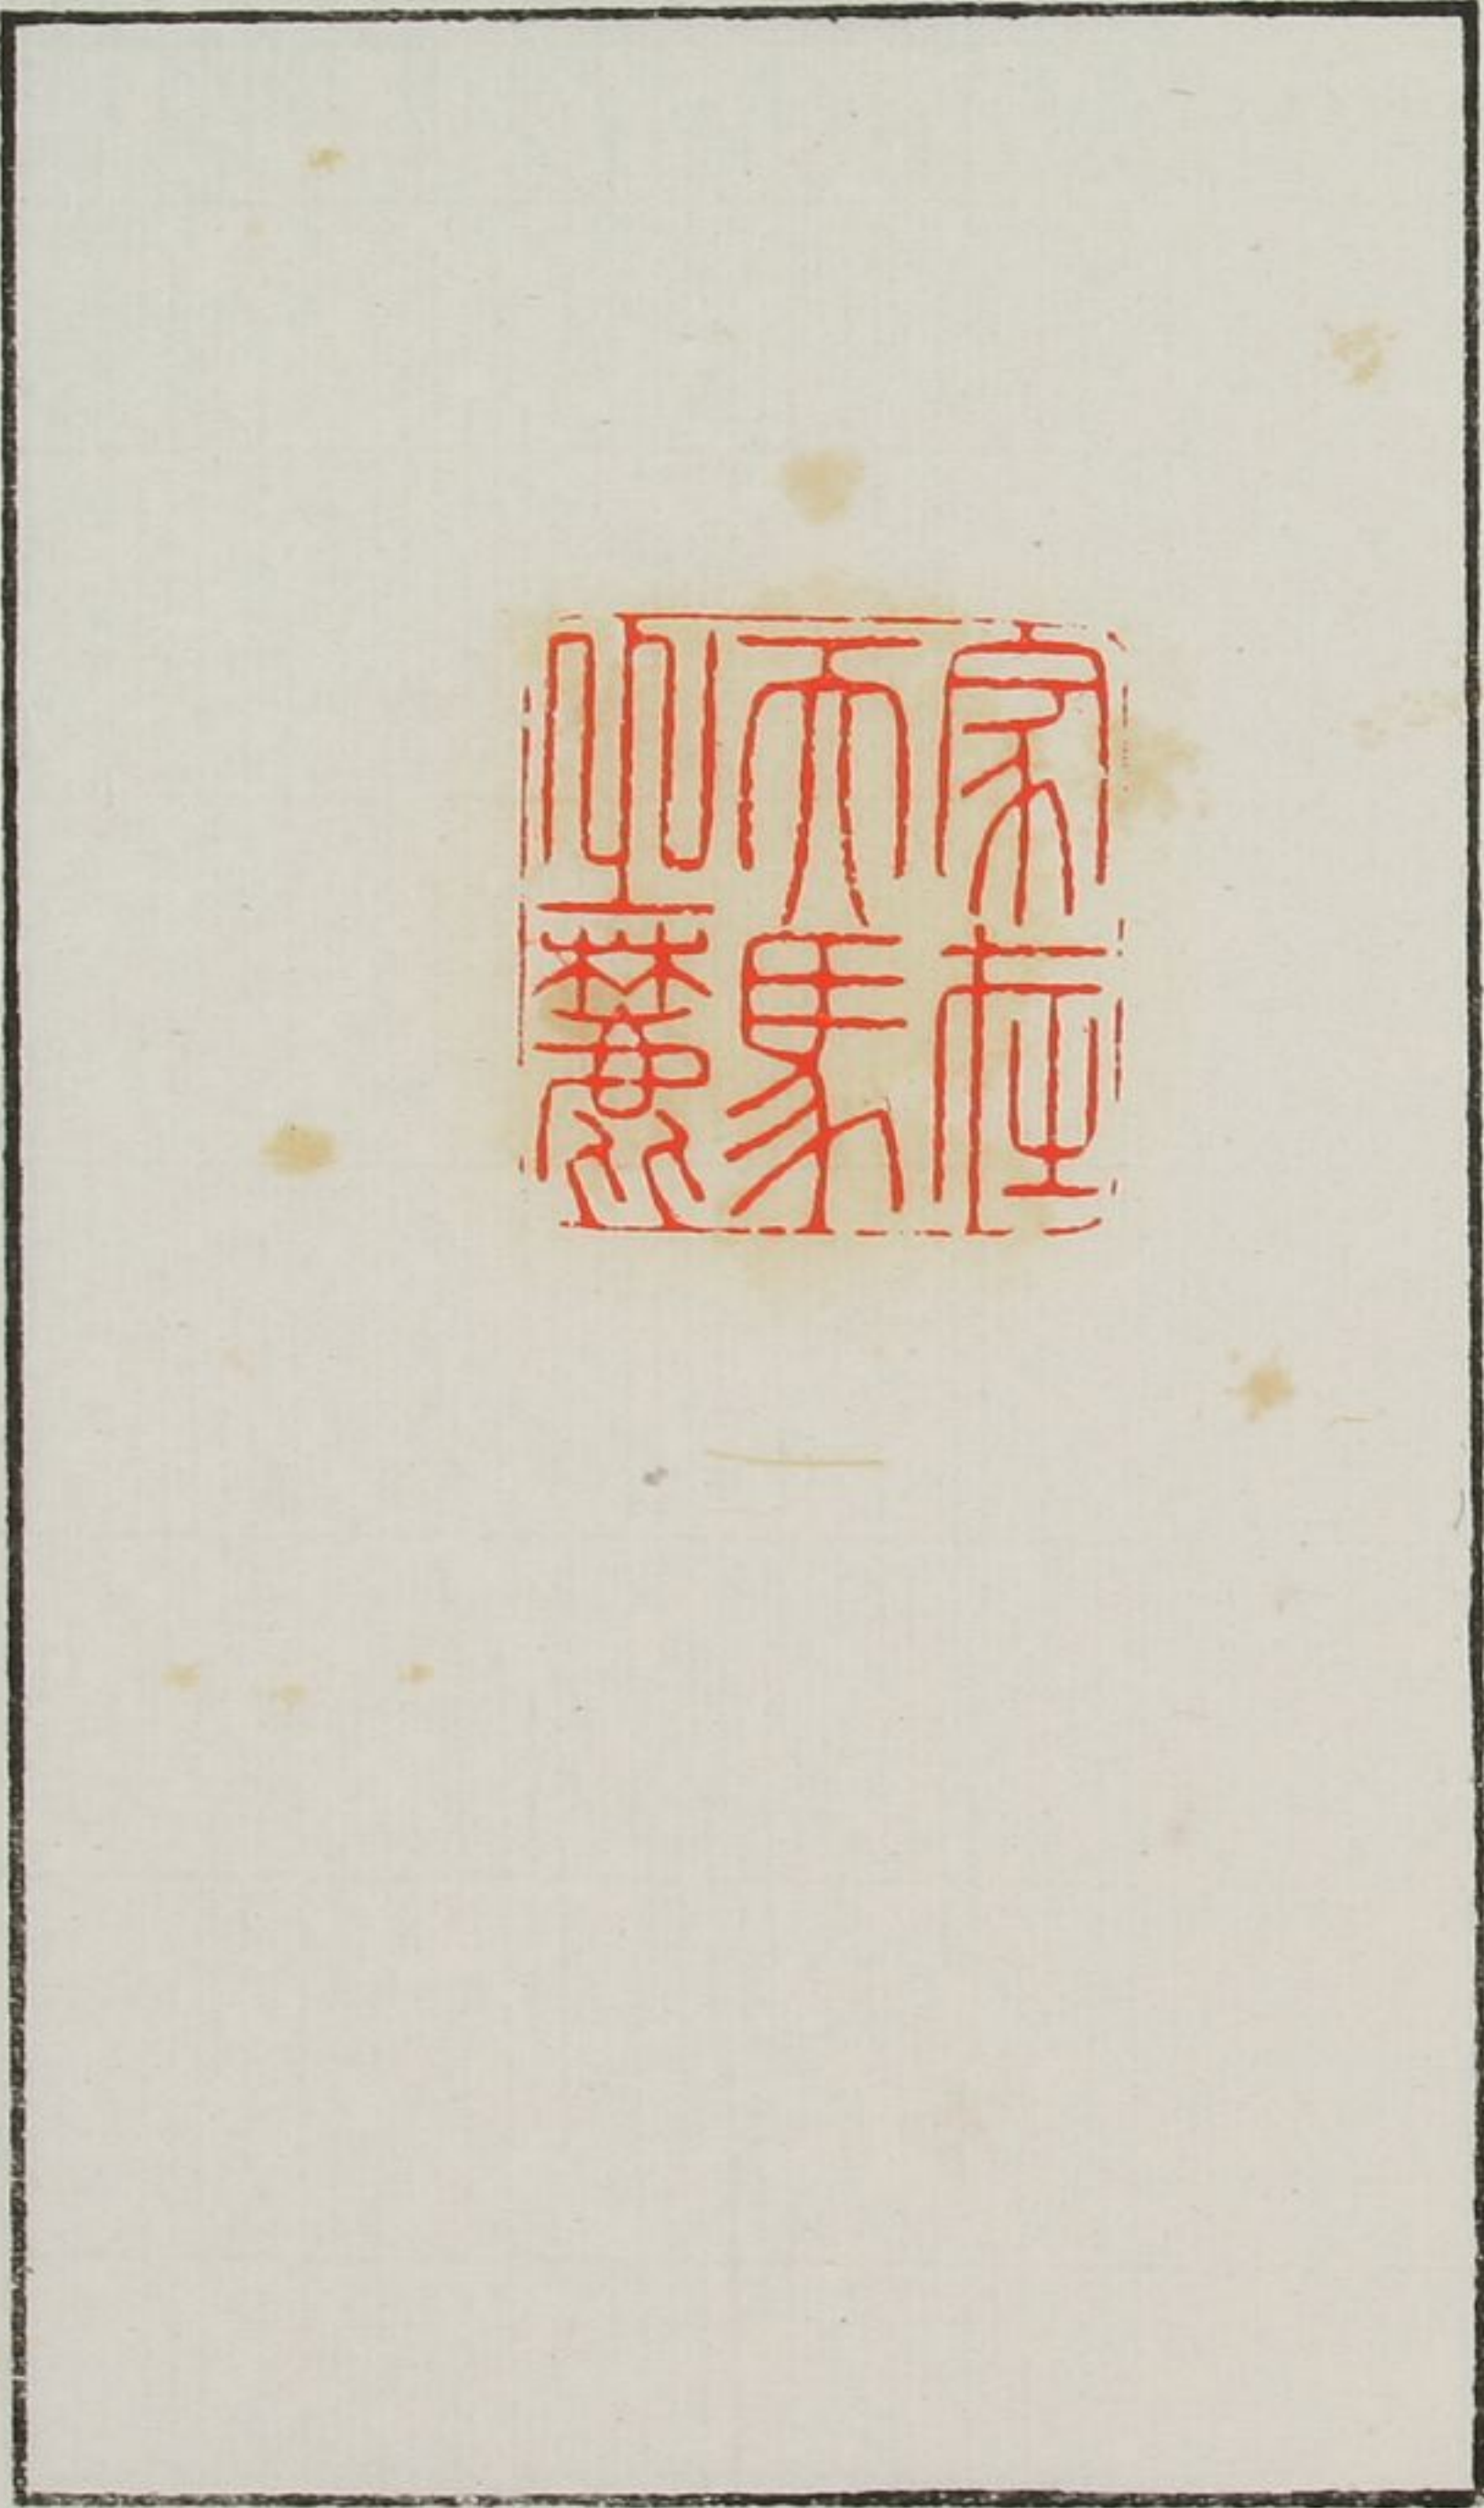 家在
天馬
山麓